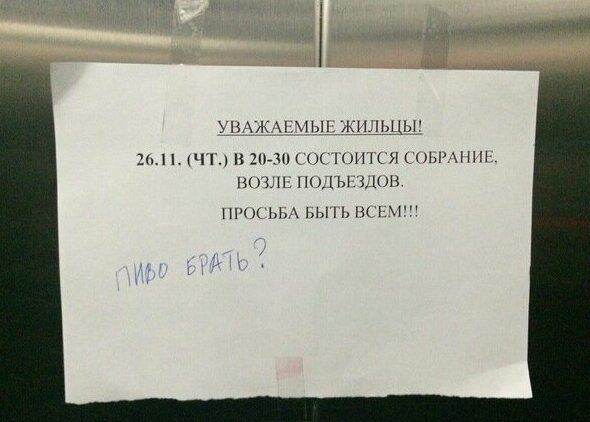 УВАЖАЕМЫЕ ЖИЛЬЦЫ!
26.11. (ЧТ.) В 20-30 СОСТОИТСЯ СОБРАНИЕ,
ВОЗЛЕ ПОДЪЕЗДОВ.
ПРОСЬБА БЫТЬ ВСЕМ!!!
ПИВО БРАТЬ?